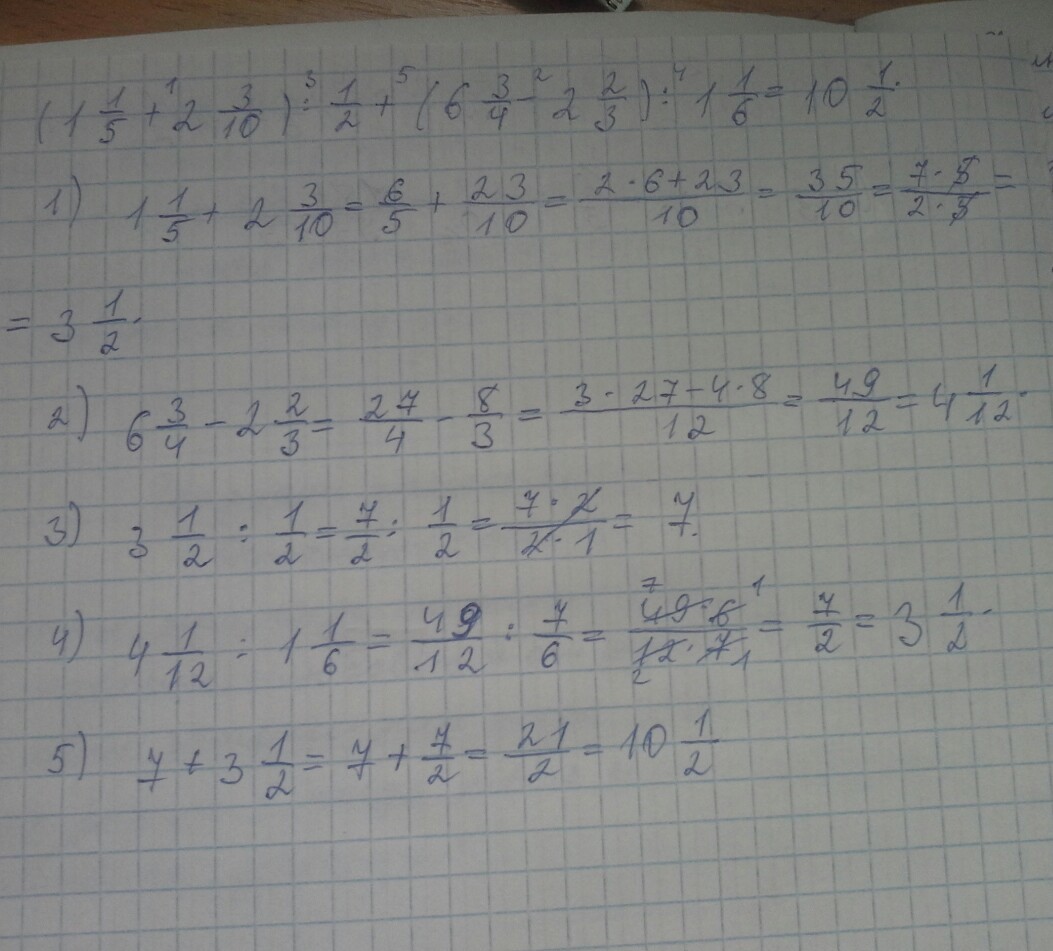 (1 1/5 +¹ 2 3/10) :³ 1/2 +⁵ (6 3/4 -² 2 2/3) :⁴ 1 1/6 = 10 1/2.
1) 1 1/5 + 2 3/10 = 6/5 + 23/10 = (2·6+23)/10 = 35/10 = (7·5)/(2·5) =
= 3 1/2.
2) 6 3/4 - 2 2/3 = 27/4 - 8/3 = (3·27-4·8)/12 = 49/12 = 4 1/12.
3) 3 1/2 : 1/2 = 7/2 : 1/2 = (7·2)/(2·1) = 7.
4) 4 1/12 : 1 1/6 = 49/12 : 7/6 = (49⁷·6¹)/(12₂·7₁) = 7/2 = 3 1/2.
5) 7 + 3 1/2 = 7 + 7/2 = 21/2 = 10 1/2